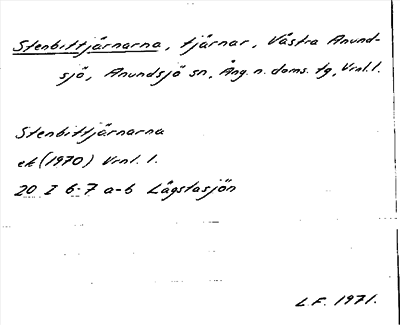 Stenbittjärnarna, tjärnar, Västra Anund-
sjö, Anundsjö sn, Ång. n. doms. tg, Vrnl. l.
Stenbittjärnarna
ek (1970) Vrnl. l.
20 I 6-7 a-b Lägstasjön
L F. 1971.